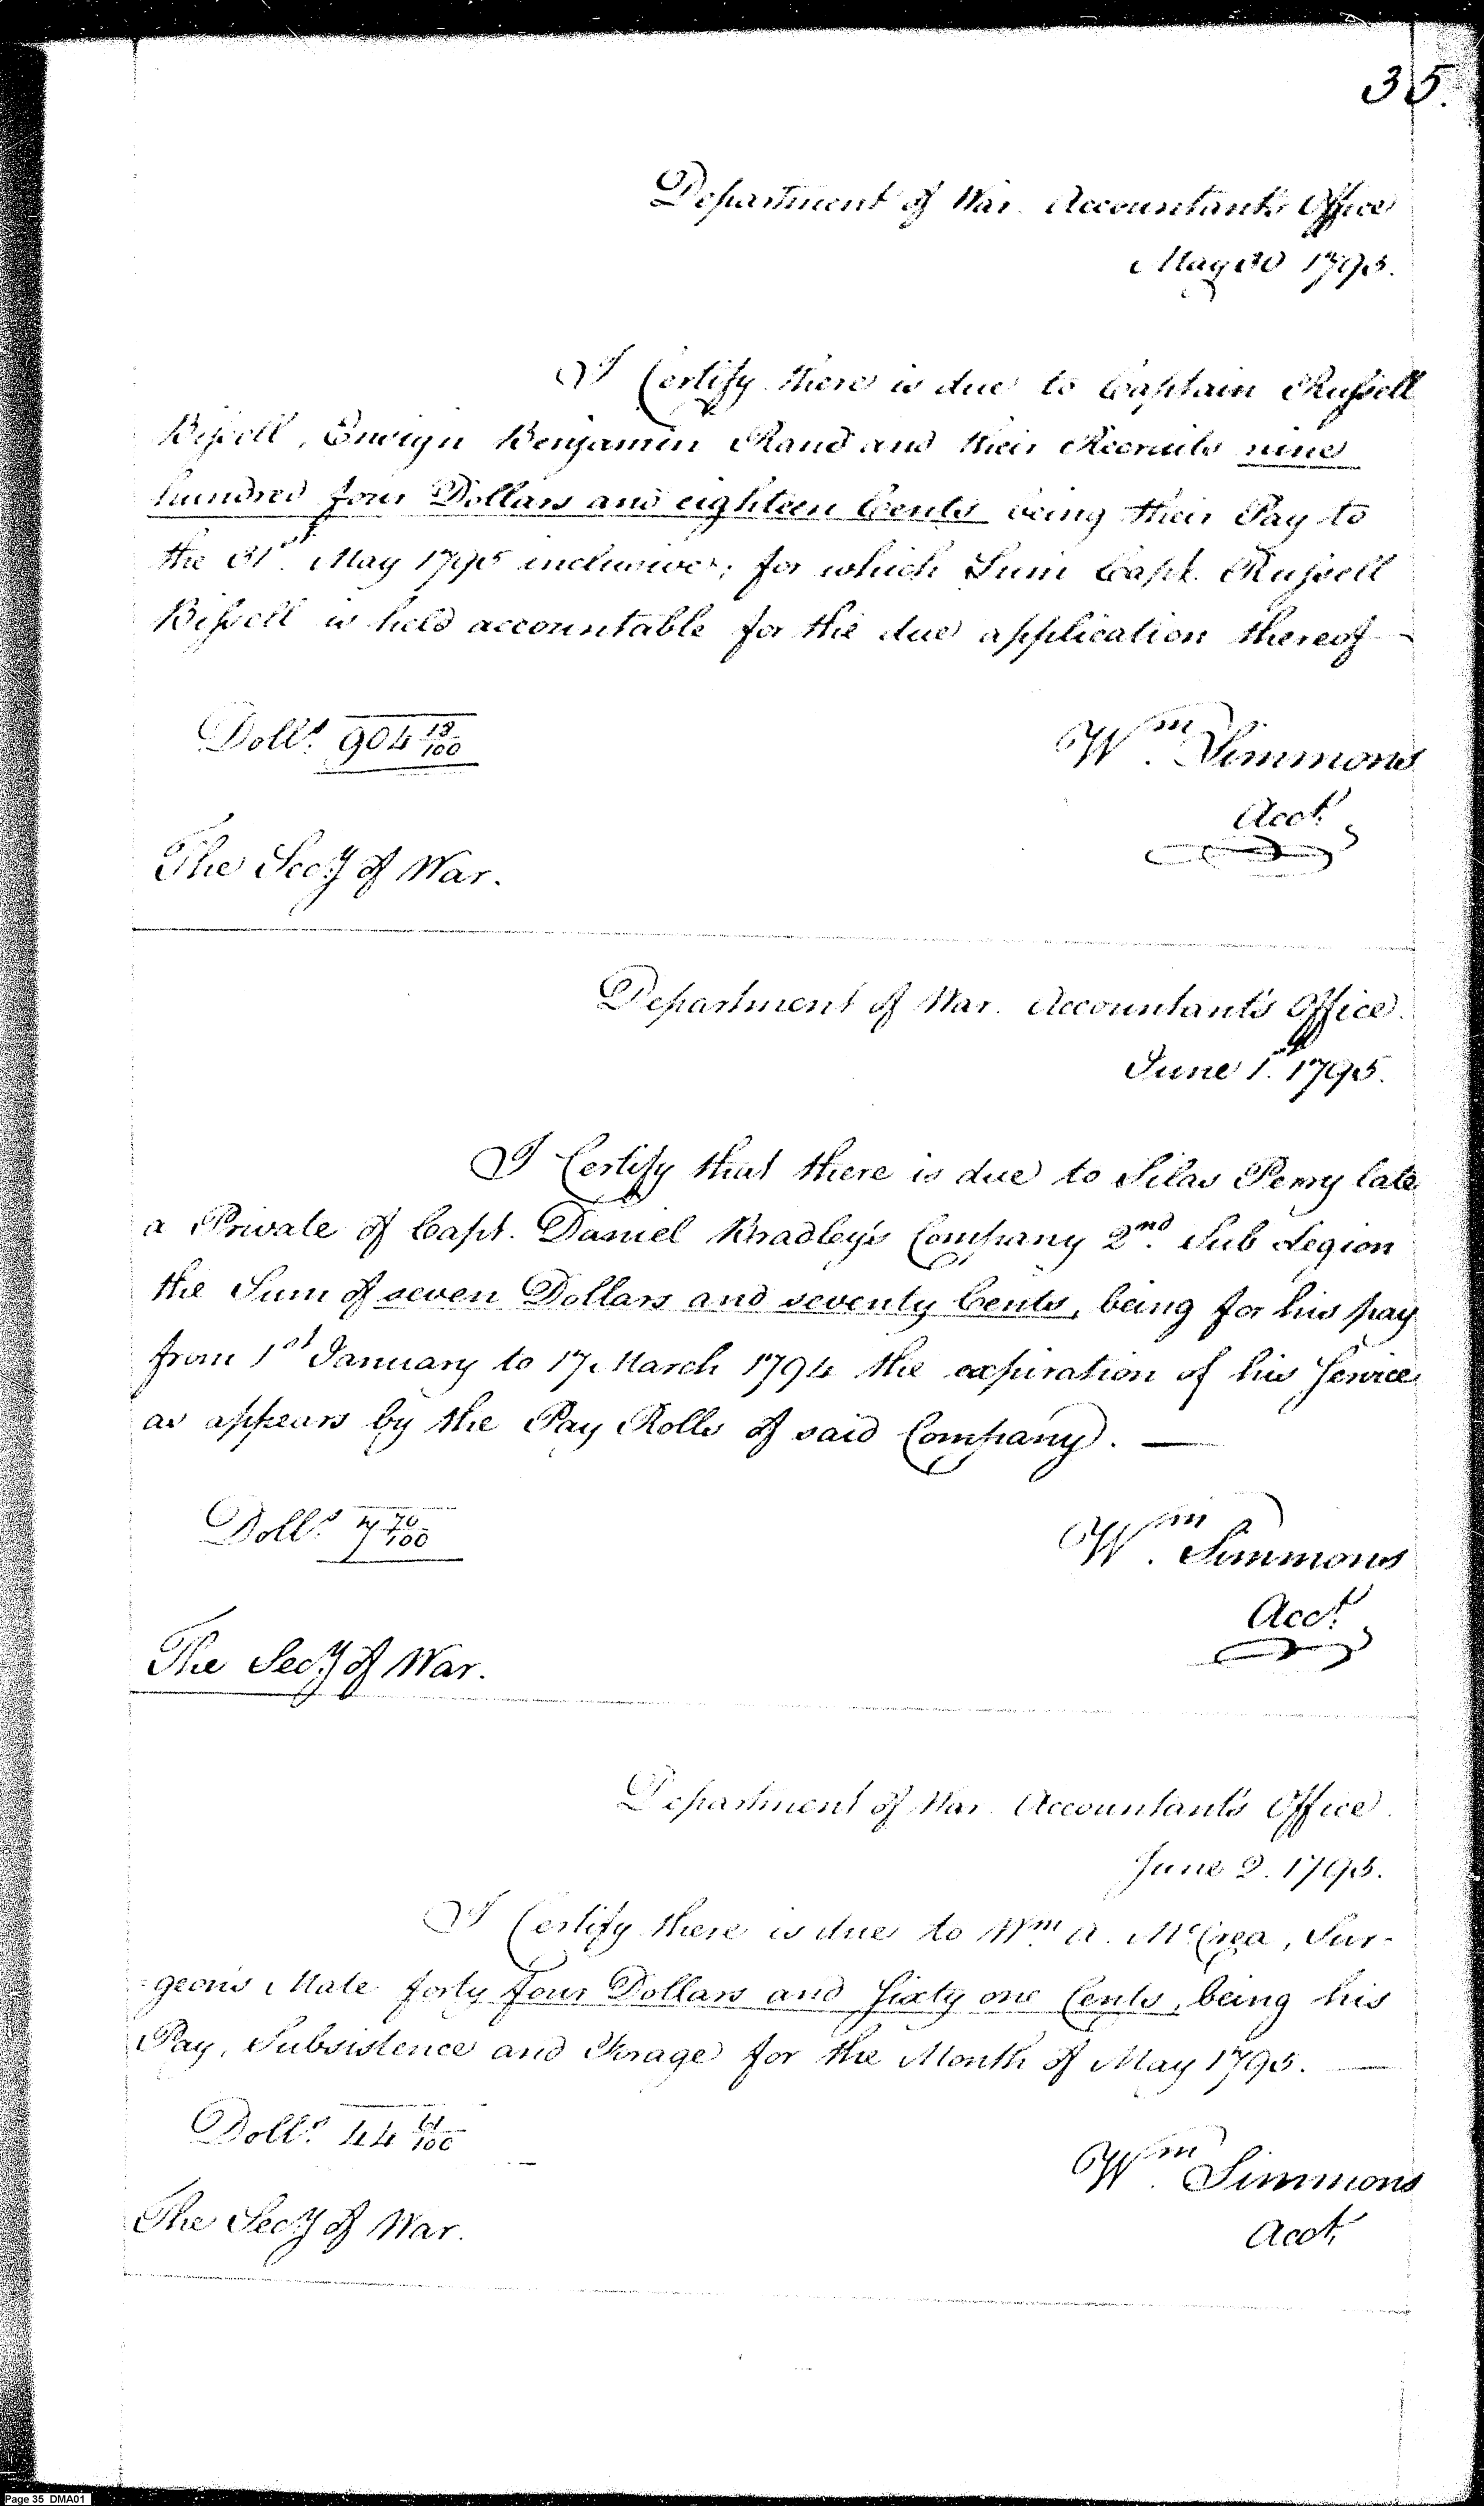 35.
Department of War. Accountant's Office
May 30 1795.
I Certify there is due to Captain Russell
Bissell, Ensign Benjamin Rand and their Recruits nine
hundred four Dollars and eighteen Cents being their Pay to
the 31st. May 1795 inclusive; for which Sum Capt. Russell
Bissell is held accountable for the due application thereof —
Doll.s 904 18/100
Wm. Simmons
Acct.
The Secy of War.
Department of War. Accountant's Office.
June 1st. 1795.
I Certify that there is due to Silas Perry late
a Private of Capt. Daniel Bradley's Company 2nd. Sub Legion
the Sum of seven Dollars and seventy Cents, being for his pay
from 1st January to 17 March 1794 the expiration of his Service
as appears by the Pay Rolls of said Company. —
Doll.s 7 70/100
Wm. Simmons
Acct.
The Secy of War.
Department of War. Accountant's Office.
June 2. 1795.
I Certify there is due to Wm. A. McCrea, Sur-
geon's Mate forty four Dollars and sixty one Cents, being his
Pay, Subsistence and Forage for the Month of May 1795. —
Doll.s 44 61/100
Wm. Simmons
Acct.
The Secy of War.
Page 35 DMA01